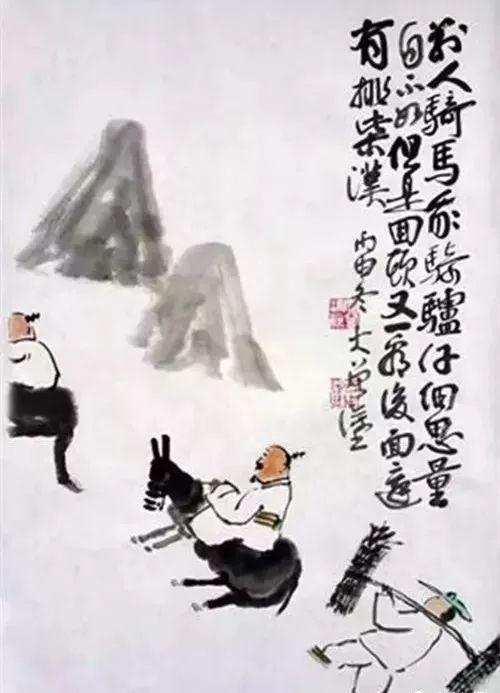 别人骑马我骑驴仔细思量
自不如但是回头又一看后面还
有挑柴汉 丙申冬大